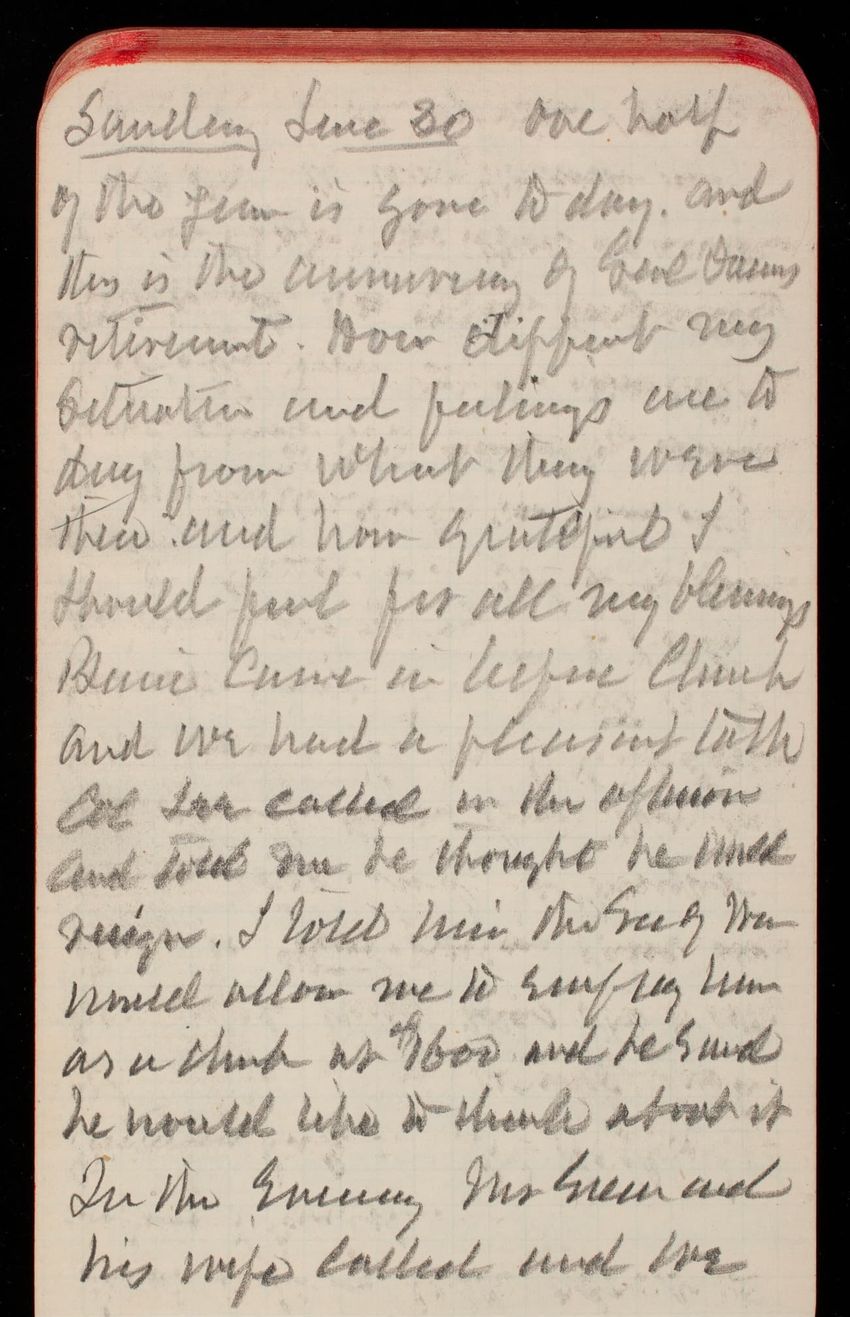 Sunday June 30 One half
of the year is gone to day. And
this is the anniversary of Genl Duanes
retirement. How different my
situation and feelings are to
day from what they were
then and how grateful I
should feel for all my blessings
came in before Church
and we had a pleasant talk
Col called in the afternoon
and told me he thought he would
resign. I told him the Secy War
would allow me to employ him
as a clerk at $1600 and he said
he would like to think about it
In the Evening Mr Green and
his wife called and we